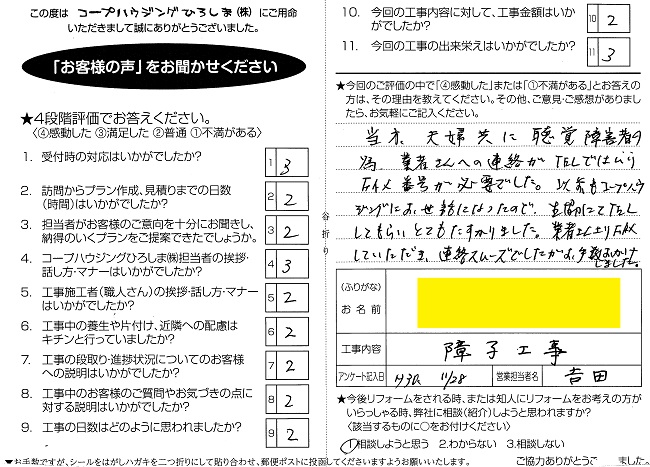 この度は コープハウジングひろしま(株) にご用命
いただきまして誠にありがとうございました。
「お客様の声」をお聞かせください
★4段階評価でお答えください。
〈④感動した ③満足した ②普通 ①不満がある〉
1. 受付時の対応はいかがでしたか?
1 3
2. 訪問からプラン作成、見積りまでの日数
(時間)はいかがでしたか?
2 2
3. 担当者がお客様のご意向を十分にお聞きし、
納得のいくプランをご提案できたでしょうか。
3 2
4. コープハウジングひろしま㈱担当者の挨拶・
話し方・マナーはいかがでしたか?
4 3
5. 工事施工者(職人さん)の挨拶・話し方・マナー
はいかがでしたか?
5 2
6. 工事中の養生や片付け、近隣への配慮は
キチンと行っていましたか?
6 2
7. 工事の段取り・進捗状況についてのお客様
への説明はいかがでしたか?
7 2
8. 工事中のお客様のご質問やお気づきの点に
対する説明はいかがでしたか?
8 2
9. 工事の日数はどのように思われましたか?
9 2
▼お手数ですが、シールをはがしハガキを二つ折りにして貼り合わせ、郵便ポストに投函してくださいますようお願いいたします。
谷折り
10. 今回の工事内容に対して、工事金額はいか
がでしたか?
10 2
11. 今回の工事の出来栄えはいかがでしたか?
11 3
★今回のご評価の中で「④感動した」または「①不満がある」とお答えの
方は、その理由を教えてください。その他、ご意見・ご感想がありました
ら、お気軽にご記入ください。
当方 夫婦共に 聴覚障害者の
為 業者さんへの連絡が TELではなく
FAX番号が必要でした。以前もコープハウ
ジングにお世話になったので、
してもらいとてもたすかりました。業者さんよりFAX
していただき、連絡スムーズでしたがお手数おかけ
しました。
(ふりがな)
お名前
工事内容
障子工事
アンケート記入日 H30. 11/28 営業担当者名 吉田
★今後リフォームをされる時、または知人にリフォームをお考えの方が
いらっしゃる時、弊社に相談(紹介)しようと思われますか?
〈該当するものに○をお付けください〉
1.相談しようと思う 2.わからない 3.相談しない
ご協力ありがとうご ました。